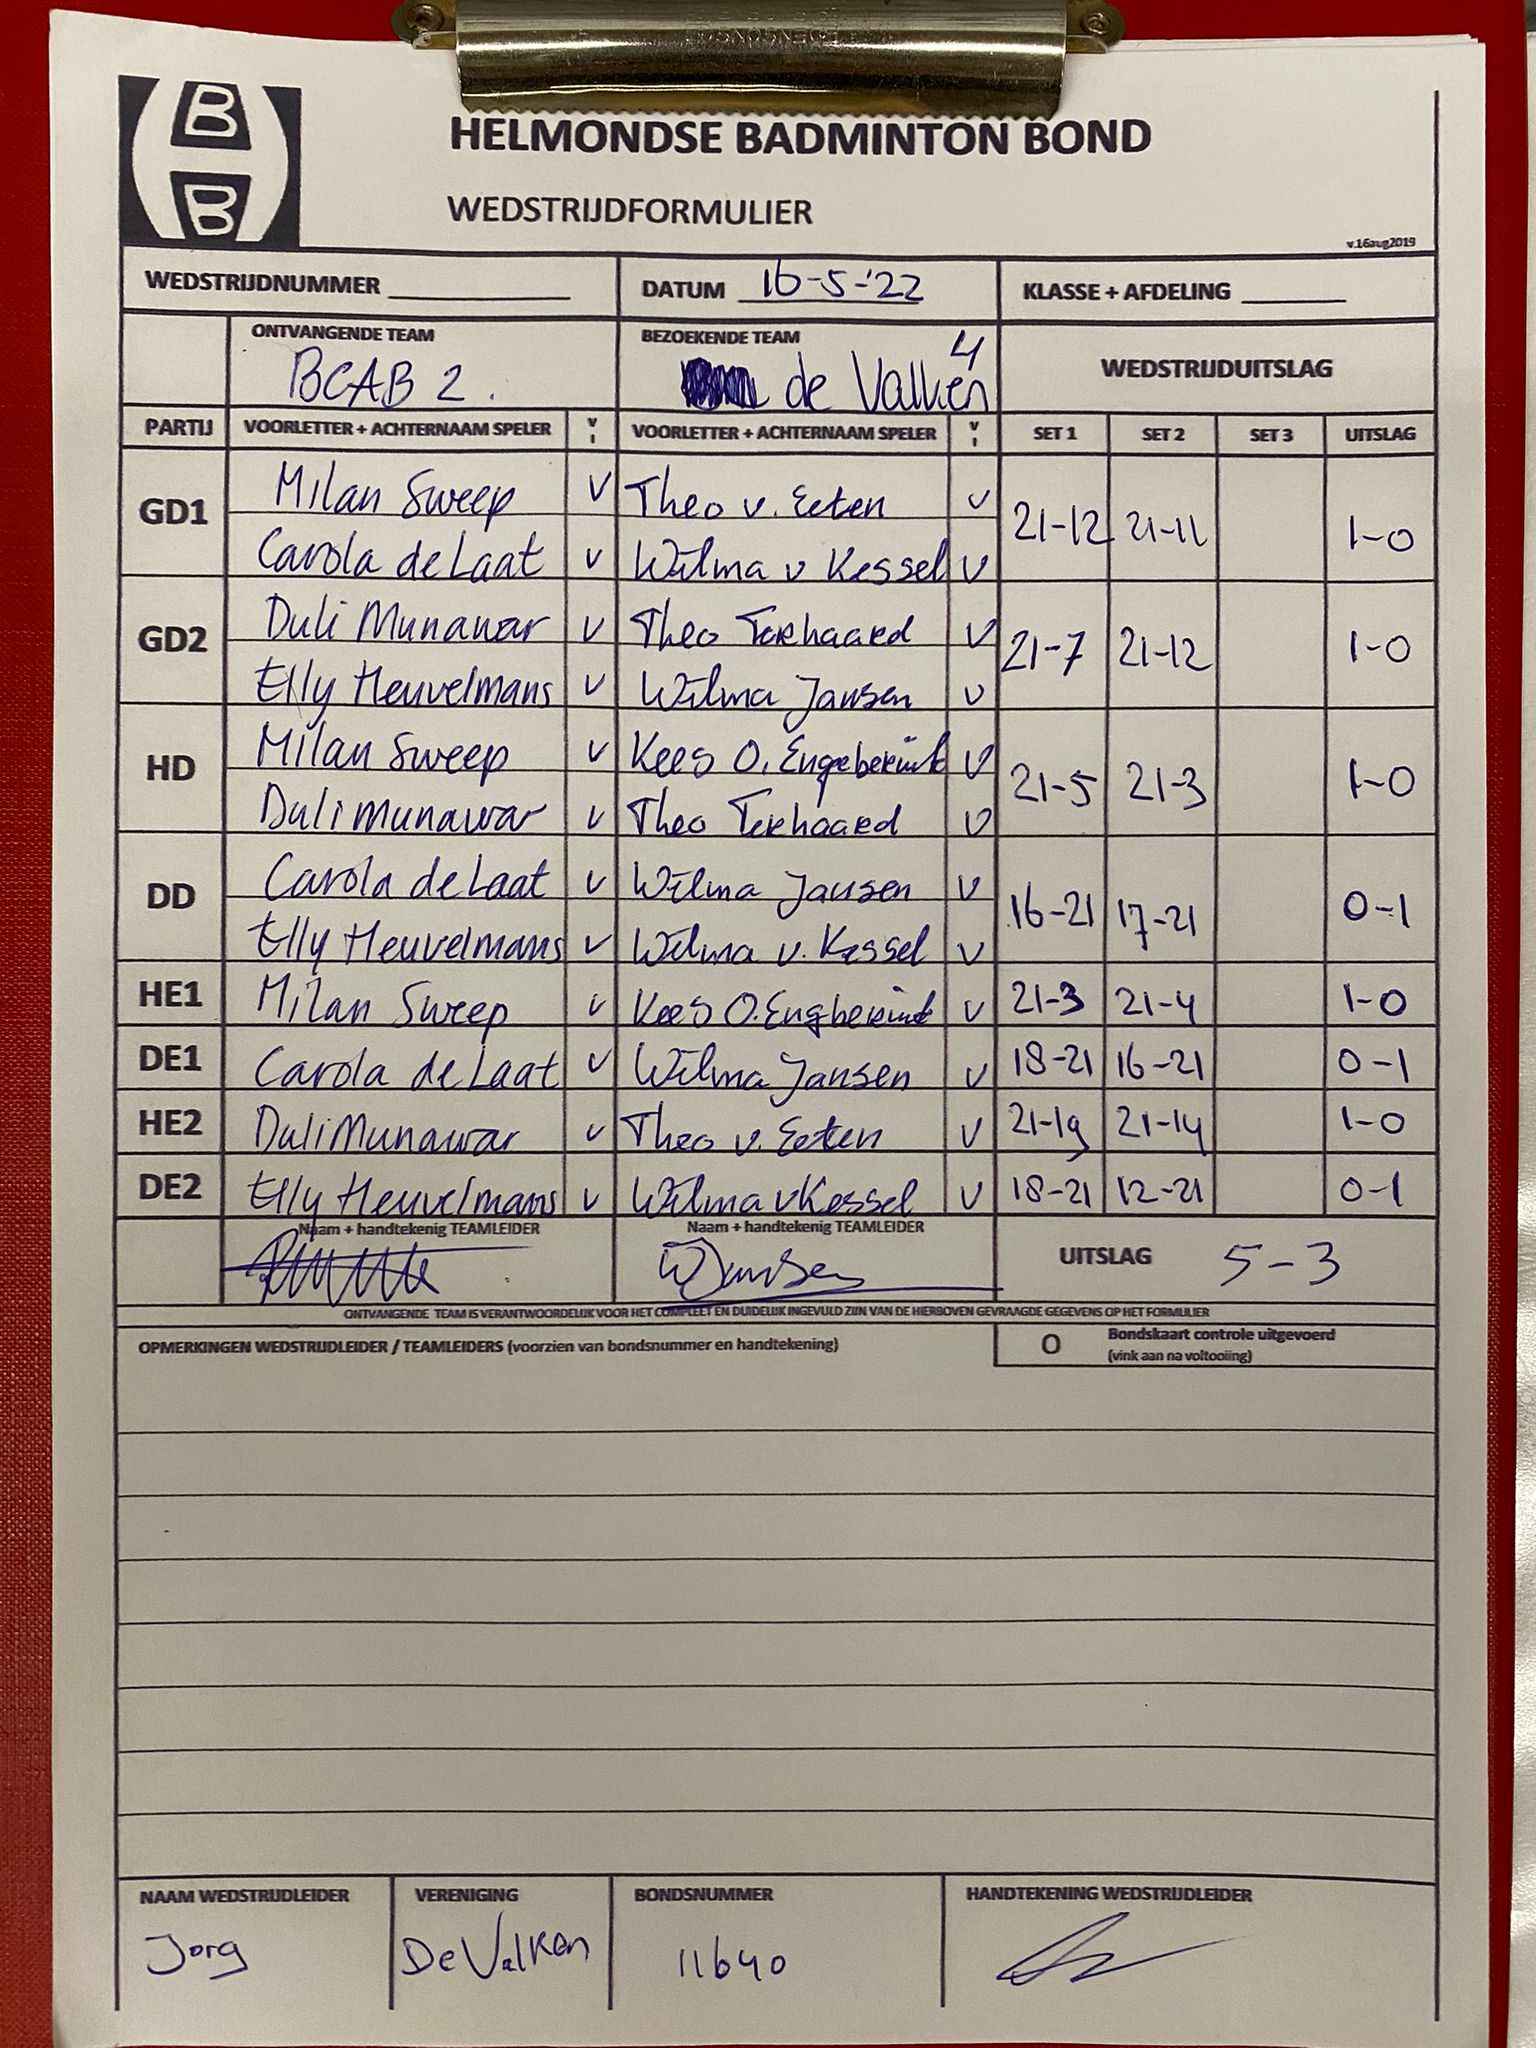 HELMONDSE BADMINTON BOND
WEDSTRIJDFORMULIER
v.16aug2019
WEDSTRIJDNUMMER DATUM 16-5-'22 KLASSE + AFDELING
ONTVANGENDE TEAM BEZOEKENDE TEAM
BCAB 2. de Valken 4 WEDSTRIJDUITSLAG
PARTIJ VOORLETTER + ACHTERNAAM SPELER V I VOORLETTER + ACHTERNAAM SPELER V I SET 1 SET 2 SET 3 UITSLAG
GD1 Milan Sweep V Theo v. Eeten V 21-12 21-11 1-0
Carola de Laat V Wilma v Kessel V
GD2 Duli Munawar V Theo Terhaard V 21-7 21-12 1-0
Elly Heuvelmans V Wilma Jansen V
HD Milan Sweep V Kees O. Engeberink V 21-5 21-3 1-0
Duli Munawar V Theo Terhaard V
DD Carola de Laat V Wilma Jansen V 16-21 17-21 0-1
Elly Heuvelmans V Wilma v. Kessel V
HE1 Milan Sweep V Kees O. Engberink V 21-3 21-4 1-0
DE1 Carola de Laat V Wilma Jansen V 18-21 16-21 0-1
HE2 Duli Munawar V Theo v. Eeten V 21-19 21-14 1-0
DE2 Elly Heuvelmans V Wilma v Kessel V 18-21 12-21 0-1
Naam + handtekenig TEAMLEIDER Naam + handtekenig TEAMLEIDER
WJansen UITSLAG 5-3
ONTVANGENDE TEAM IS VERANTWOORDELIJK VOOR HET COMPLEET EN DUIDELIJK INGEVULD ZIJN VAN DE HIERBOVEN GEVRAAGDE GEGEVENS OP HET FORMULIER
OPMERKINGEN WEDSTRIJDLEIDER / TEAMLEIDERS (voorzien van bondsnummer en handtekening) O Bondskaart controle uitgevoerd
(vink aan na voltooiing)
NAAM WEDSTRIJDLEIDER VERENIGING BONDSNUMMER HANDTEKENING WEDSTRIJDLEIDER
Jorg De Valken 11640